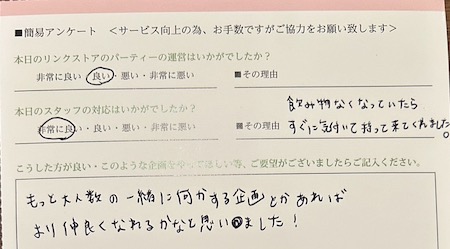 ■簡易アンケート <サービス向上の為、お手数ですがご協力をお願い致します>
本日のリンクストアのパーティーの運営はいかがでしたか?
非常に良い・良い・悪い・非常に悪い ■その理由
本日のスタッフの対応はいかがでしたか?
飲み物なくなっていたら
非常に良い・良い・悪い・非常に悪い ■その理由 すぐに気付いて持って来てくれました。
こうした方が良い・このような企画をやってほしい等、ご要望がございましたらご記入ください。
もっと大人数の一緒に何かする企画とかあれば
より仲良くなれるかなと思いました!